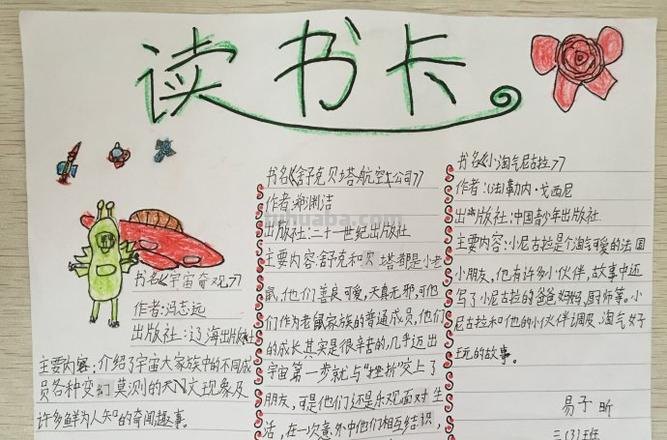 读书卡
书名《宇宙奇观》
作者:冯志远
出版社:辽海出版社
主要内容:介绍了宇宙大家族中的不同成
员各种变幻莫测的天文现象及
许多鲜为人知的奇闻趣事。
书名《舒克贝塔航空公司》
作者:郑渊洁
出版社:二十一世纪出版社
主要内容:舒克和贝塔都是小老
鼠,他们善良可爱,天真无邪,可他
们作为老鼠家族的普通成员,他们
的成长其实是很辛苦的,几乎迈出
宇宙第一步就与"挫折"交上了
朋友,可是他们还是乐观面对生
活,在一次意外中他们相互结识,
书名《小淘气尼古拉》
作者:(法)勒内·戈西尼
出版社:中国青少年出版社
主要内容:小尼古拉是个淘气可爱的法国
小朋友,他有许多小伙伴,故事中还
写了小尼古拉的爸爸妈妈,厨师等。小
尼古拉和他的小伙伴调皮、淘气好
玩的故事。
易子昕
三(3)班